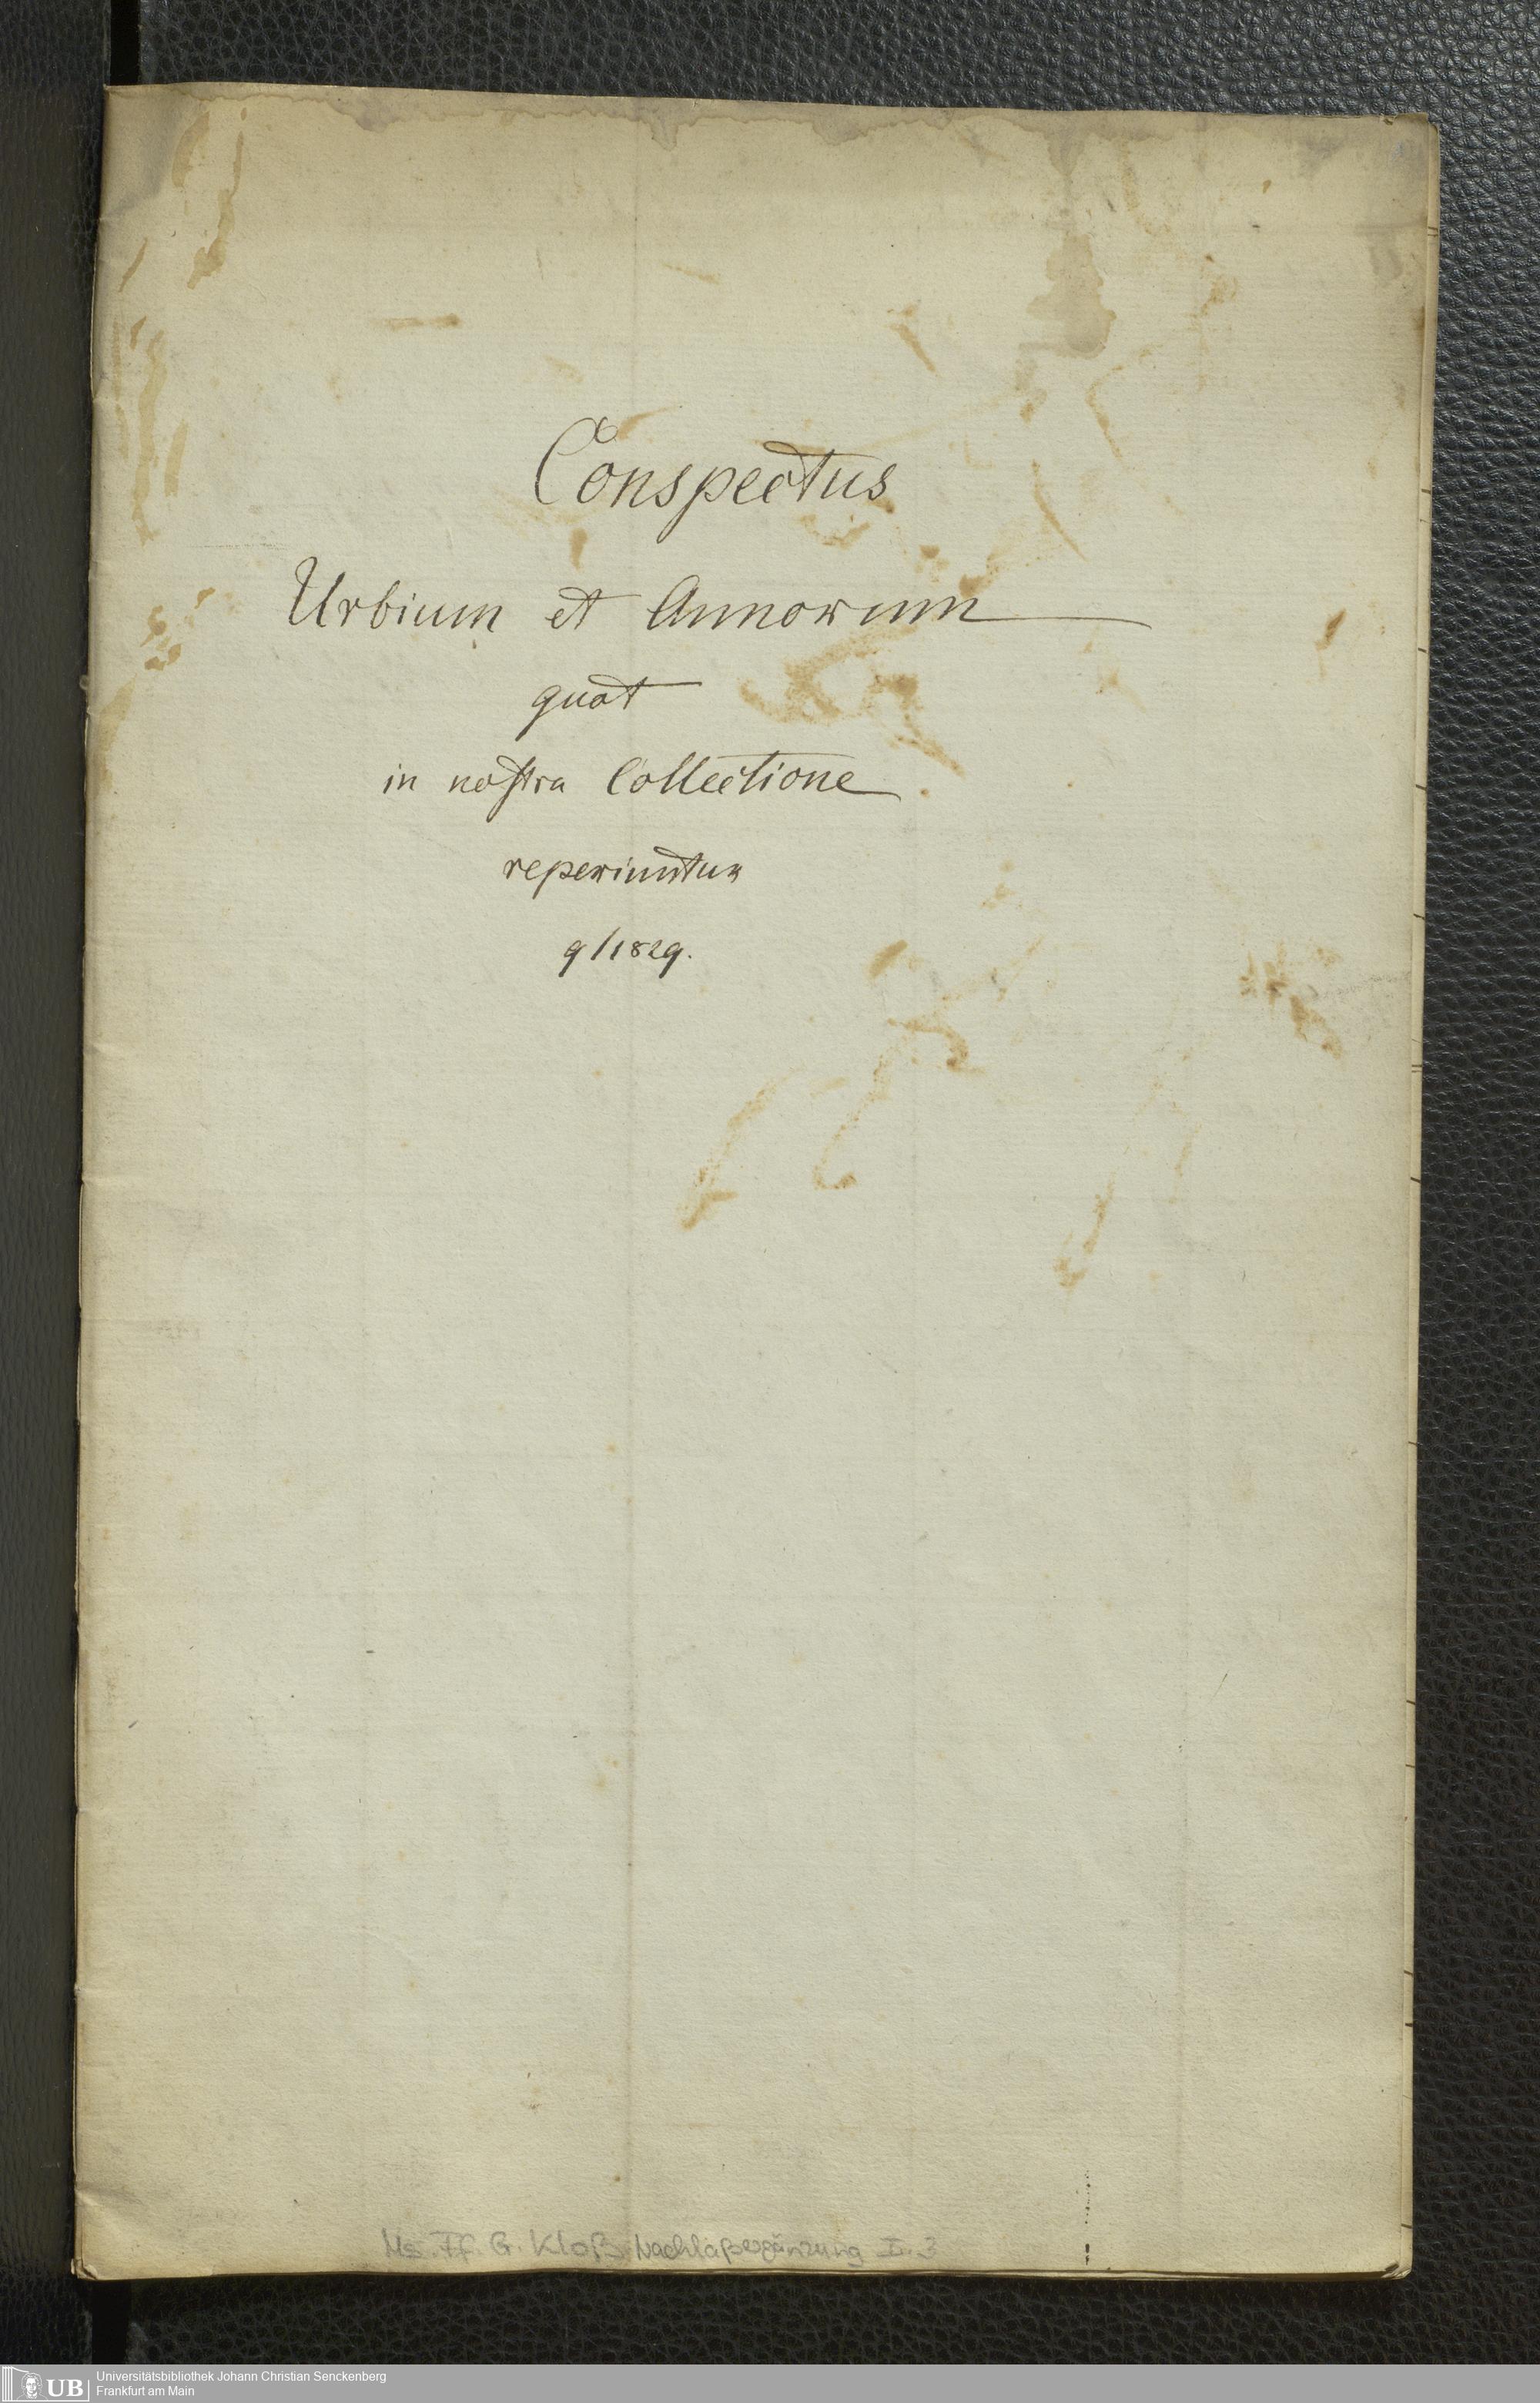 Conspectus
Urbium et Annorum
quot
in nostra Collectione
reperiuntur
9/1829.
Ms. Ff. G. Kloß Nachlaßergänzung II. 3
UB
Universitätsbibliothek Johann Christian Senckenberg
Frankfurt am Main